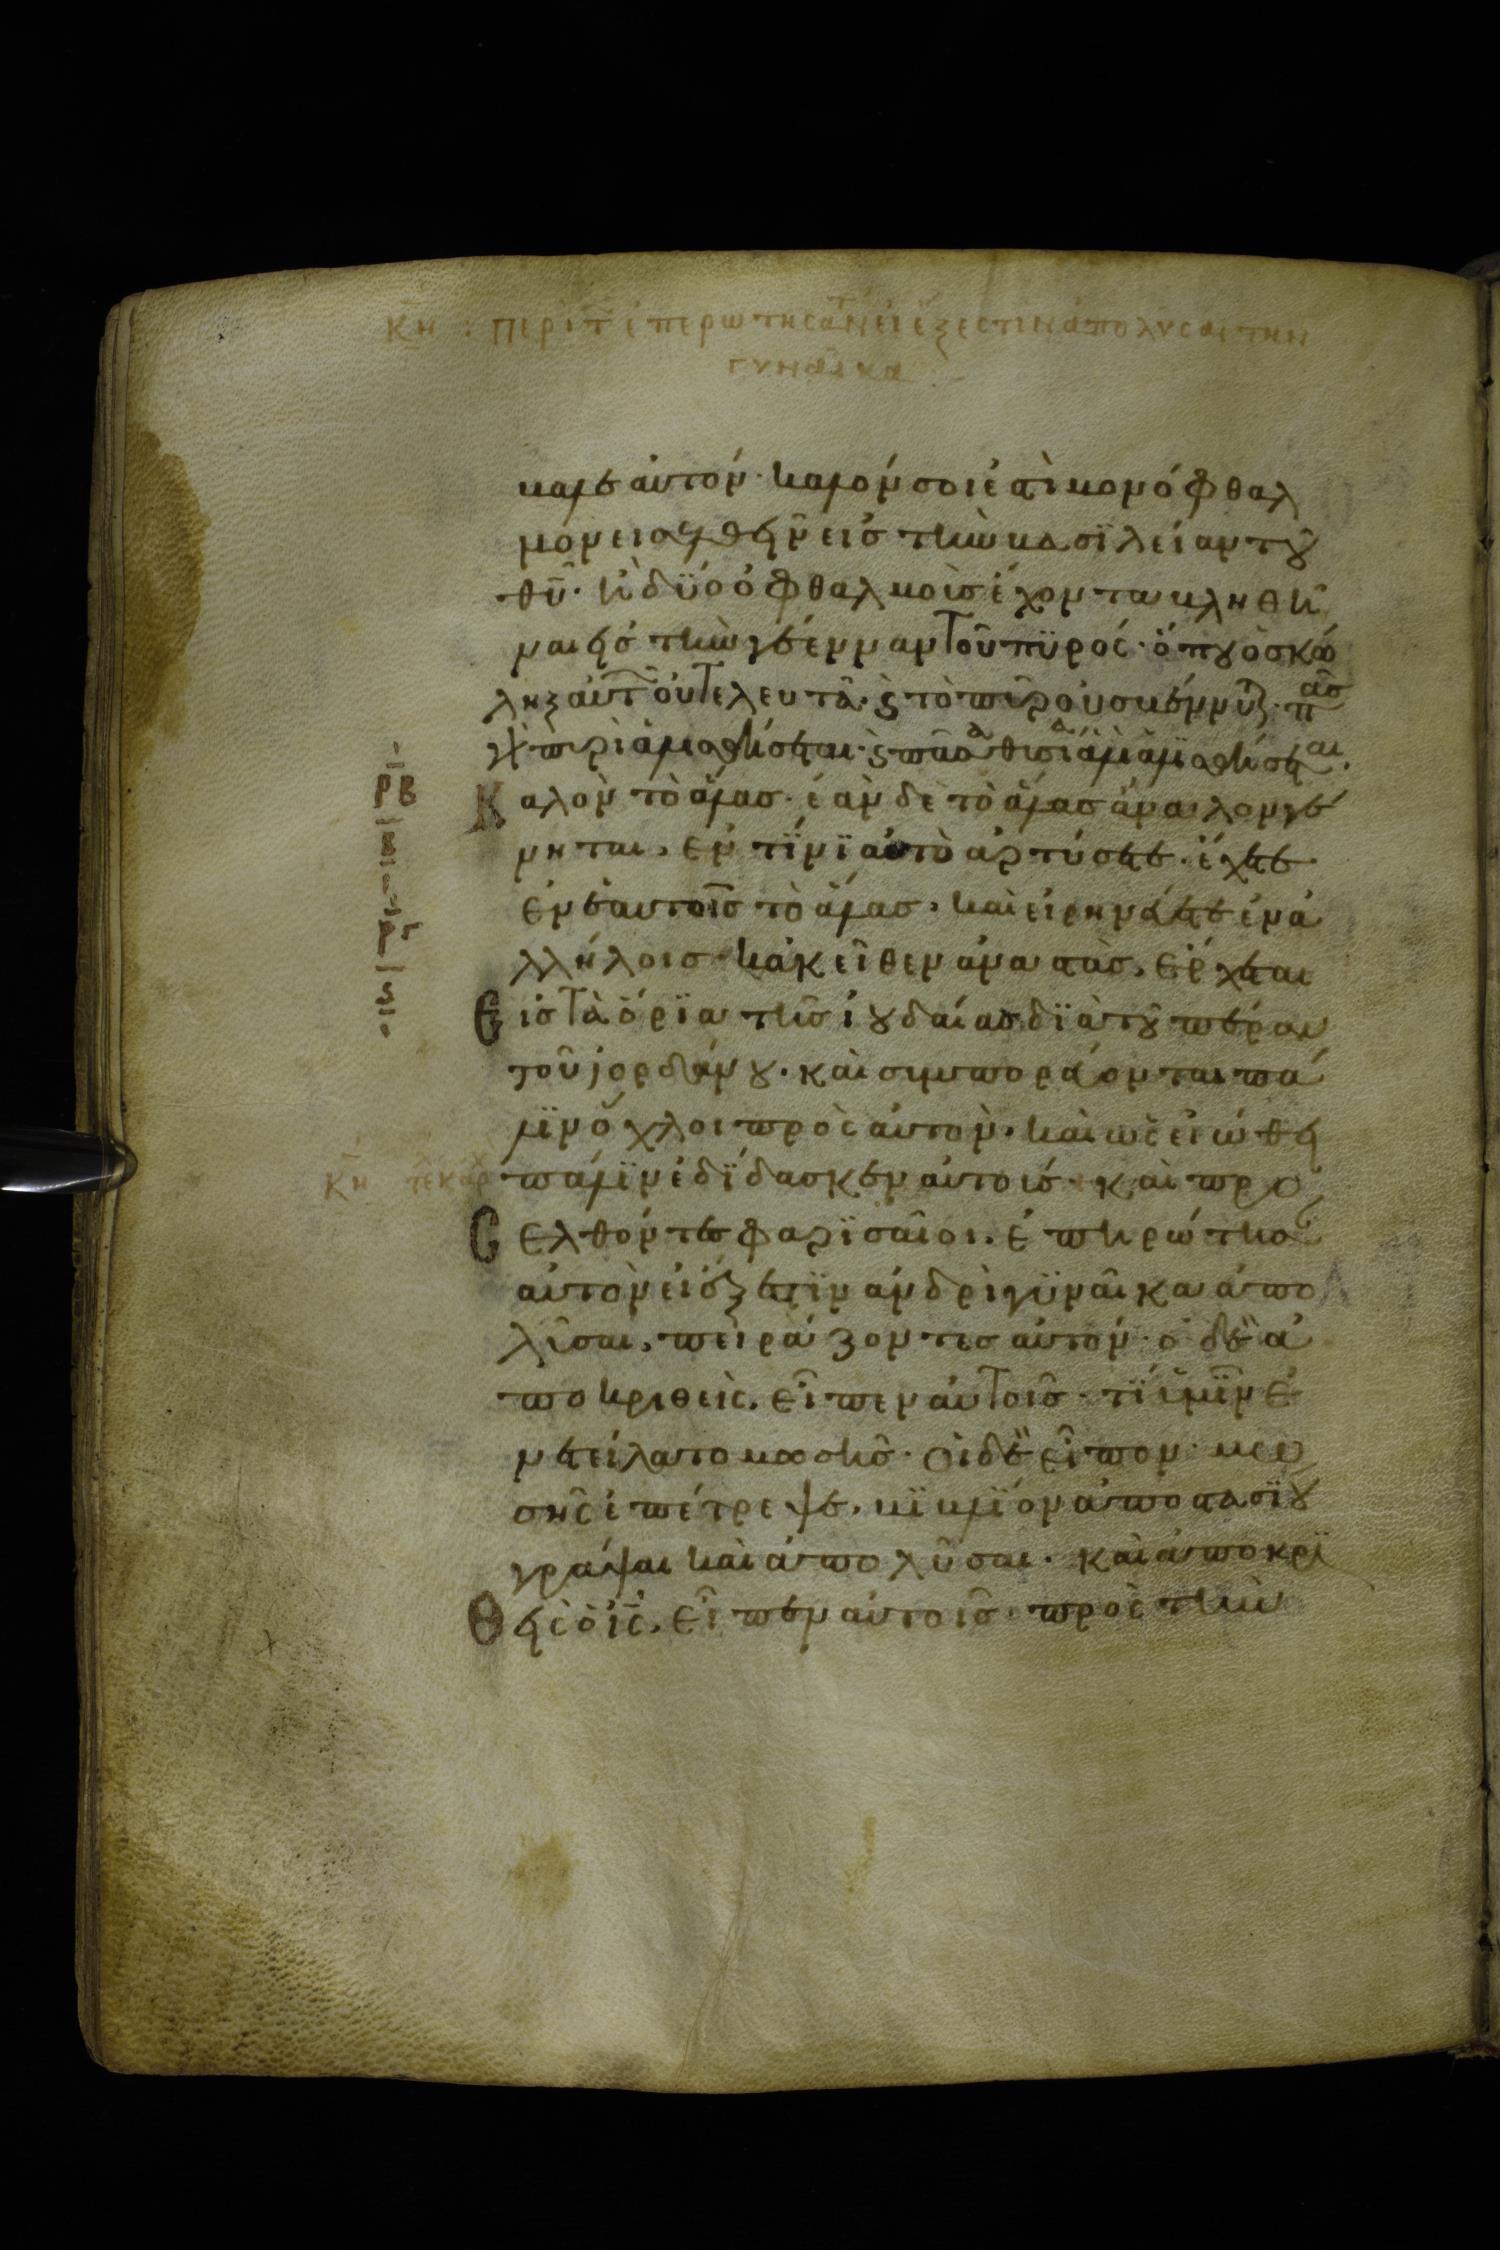 κη : περι τ επερωτησαν ει εξεστιν απολυσαι την
γυναικα
καλε αυτόν· καλόν σοι ἐστὶ μονόφθαλ
μον εισελθεῖν εἰσ τὴν βασϊλείαν τοῦ
θῦ· ἢ δϋο ὀφθαλμοὺσ ἔχοντα βληθῆ
ναι εἰσ τὴν γέενναν τοῦ πϋρόσ· ὅπου ὁ σκώ
ληξ αὐτῶν οὐ τελευτᾶ· ϛ τὸ πῦρ οὐ σβέννυται· πᾶσ
γὰρ πυρὶ ἁλισθήσεται· ϛ πᾶσα θυσία ἁλὶ ἁλϊσθήσεται·
ρβ
β
Καλὸν τὸ ἅλασ· ἐὰν δὲ τὸ ἅλασ ἄναλον γέ
νηται, ἐν τίνϊ αὐτὸ ἀρτύσετε· ἔχετε
ἐν ἑαυτοῖσ τὸ ἅλασ, καὶ εἰρηνεύετε ἐν ἀ
ργ
λλήλοισ· κἀκεῖθεν ἀναστὰσ, ἔρχεται
ϛ
Εἰσ τὰ ὅρϊα τῆσ ἰουδαίασ δϊὰ τοῦ πέραν
τοῦ ἰορδάνου· καὶ συμπορεύονται πά
λϊν ὄχλοι πρὸσ αὐτὸν, καὶ ὡσ εἰώθει
κη
πάλϊν ἐδϊδασκεν αὐτούσ· καὶ προ
Σελθόντεσ φαρϊσαῖοι, ἐπηρώτησαν
αὐτὸν εἰ ἔξεστϊν ἀνδρὶ γϋναῖκα ἀπο
λῦσαι, πειράζοντεσ αὐτόν· ὁ δὲ ἀ
ποκριθεὶσ, εἶπεν αὐτοῖσ· τί ὑμῖν ἐ
νετείλατο μωσῆσ· οἱ δὲ εἶπον· μω
σῆσ ἐπέτρεψε, βϊβλϊον ἀποστασϊου
γράψαι καὶ ἀπολῦσαι· καὶ ἀποκρϊ
Θεὶσ ὁ ἰσ, εἶπεν αὐτοῖσ· πρὸσ τὴν